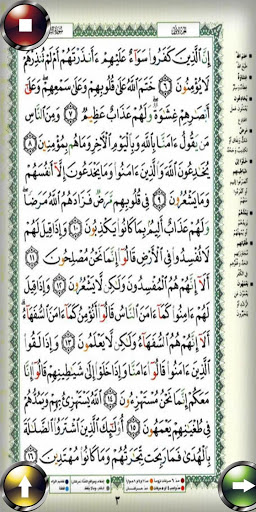 إِنَّ ٱلَّذِينَ كَفَرُوا۟ سَوَآءٌ عَلَيْهِمْ ءَأَنذَرْتَهُمْ أَمْ لَمْ تُنذِرْهُمْ
لَا يُؤْمِنُونَ ٦ خَتَمَ ٱللَّهُ عَلَىٰ قُلُوبِهِمْ وَعَلَىٰ سَمْعِهِمْ وَعَلَىٰٓ
أَبْصَـٰرِهِمْ غِشَـٰوَةٌ وَلَهُمْ عَذَابٌ عَظِيمٌ ٧ وَمِنَ ٱلنَّاسِ
مَن يَقُولُ ءَامَنَّا بِٱللَّهِ وَبِٱلْيَوْمِ ٱلْـَٔاخِرِ وَمَا هُم بِمُؤْمِنِينَ ٨
يُخَـٰدِعُونَ ٱللَّهَ وَٱلَّذِينَ ءَامَنُوا۟ وَمَا يَخْدَعُونَ إِلَّآ أَنفُسَهُمْ
وَمَا يَشْعُرُونَ ٩ فِى قُلُوبِهِم مَّرَضٌ فَزَادَهُمُ ٱللَّهُ مَرَضًا
وَلَهُمْ عَذَابٌ أَلِيمٌۢ بِمَا كَانُوا۟ يَكْذِبُونَ ١٠ وَإِذَا قِيلَ لَهُمْ
لَا تُفْسِدُوا۟ فِى ٱلْأَرْضِ قَالُوٓا۟ إِنَّمَا نَحْنُ مُصْلِحُونَ ١١
أَلَآ إِنَّهُمْ هُمُ ٱلْمُفْسِدُونَ وَلَـٰكِن لَّا يَشْعُرُونَ ١٢ وَإِذَا قِيلَ
لَهُمْ ءَامِنُوا۟ كَمَآ ءَامَنَ ٱلنَّاسُ قَالُوٓا۟ أَنُؤْمِنُ كَمَآ ءَامَنَ ٱلسُّفَهَآءُ
أَلَآ إِنَّهُمْ هُمُ ٱلسُّفَهَآءُ وَلَـٰكِن لَّا يَعْلَمُونَ ١٣ وَإِذَا لَقُوا۟
ٱلَّذِينَ ءَامَنُوا۟ قَالُوٓا۟ ءَامَنَّا وَإِذَا خَلَوْا۟ إِلَىٰ شَيَـٰطِينِهِمْ قَالُوٓا۟ إِنَّا
مَعَكُمْ إِنَّمَا نَحْنُ مُسْتَهْزِءُونَ ١٤ ٱللَّهُ يَسْتَهْزِئُ بِهِمْ وَيَمُدُّهُمْ
فِى طُغْيَـٰنِهِمْ يَعْمَهُونَ ١٥ أُو۟لَـٰٓئِكَ ٱلَّذِينَ ٱشْتَرَوُا۟ ٱلضَّلَـٰلَةَ
بِٱلْهُدَىٰ فَمَا رَبِحَت تِّجَـٰرَتُهُمْ وَمَا كَانُوا۟ مُهْتَدِينَ ١٦
٣